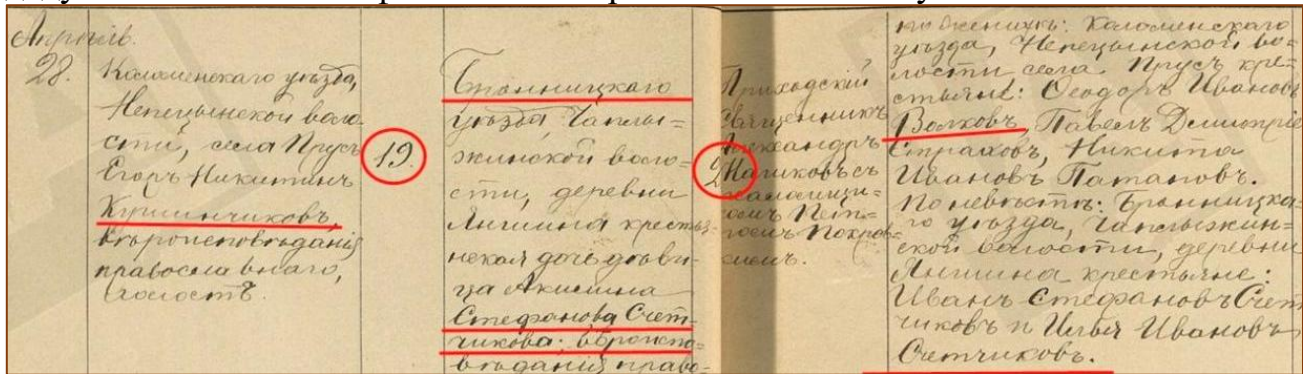 Апрѣль.
28.
Коломенскаго уѣзда,
Непецынской воло
сти, села Прусъ
Егоръ Никитинъ
Кушинчиковъ,
вѣроисповѣданія
православнаго,
холостъ.
19.
Бронницкаго
уѣзда, Чаплы=
жинской воло=
сти, деревни
Аншина крестья=
нская дочь дѣви=
ца Акилина
Стефанова Счет=
чикова; вѣроиспо=
вѣданія право=
Приходскій
Священникъ
Александръ
съ
по женихѣ: Коломенскаго
уѣзда, Непецынской во=
лости села Прусъ кре=
стьяне: Ѳеодоръ Ивановъ
Волковъ, Павелъ Димитріе
Страховъ, Никита
Ивановъ Патаповъ.
По невѣстѣ: Бронницка=
го уѣзда, Чаплыжин=
ской волости, деревни
Аншина крестьяне:
Иванъ Стефановъ Счет
чиковъ и Илья Ивановъ
Счетчиковъ.